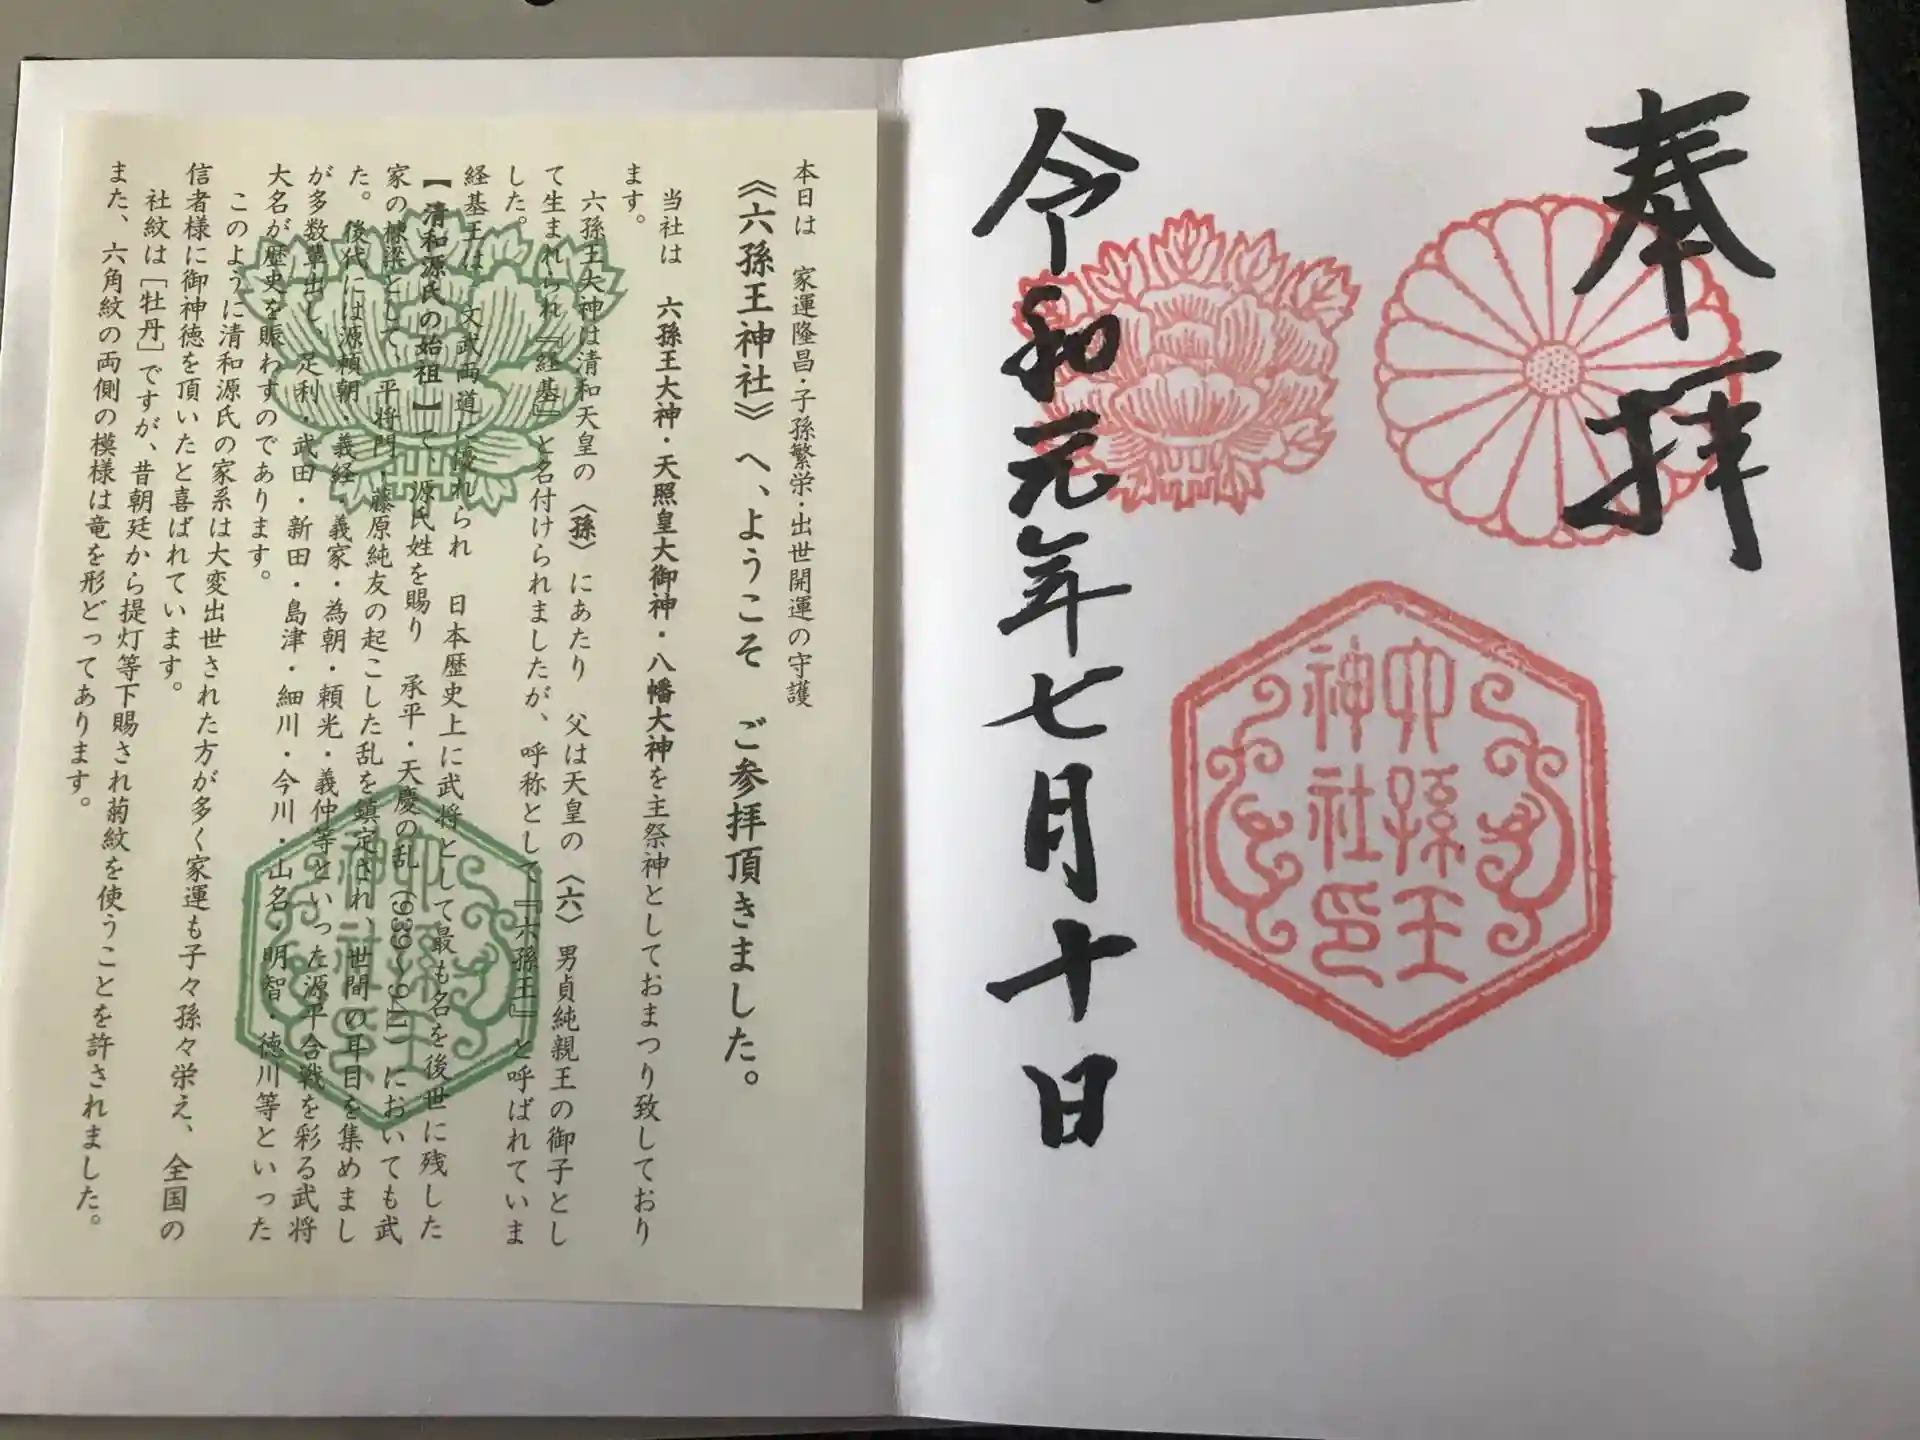 奉拝
六孫王
神社印
令和元年七月十日
本日は 家運隆昌・子孫繁栄・出世開運の守護
《六孫王神社》へ、ようこそ ご参拝頂きました。
当社は 六孫王大神・天照皇大御神・八幡大神を主祭神としておまつり致しており
ます。
六孫王大神は清和天皇の〈孫〉にあたり 父は天皇の〈六〉男貞純親王の御子とし
て生まれられ『経基』と名付けられましたが、呼称として『六孫王』と呼ばれていま
した。
経基王は、文武両道に優れられ 日本歴史上に武将として最も名を後世に残した
【清和源氏の始祖】で、源氏姓を賜り 承平・天慶の乱(939～941)においても武
家の棟梁として、平将門・藤原純友の起こした乱を鎮定され、世間の耳目を集めまし
た。後代には源頼朝・義経・義家・為朝・頼光・義仲等といった源平合戦を彩る武将
が多数輩出し、足利・武田・新田・島津・細川・今川・山名・明智・徳川等といった
大名が歴史を賑わすのであります。
このように清和源氏の家系は大変出世された方が多く家運も子々孫々栄え、全国の
信者様に御神徳を頂いたと喜ばれています。
社紋は［牡丹］ですが、昔朝廷から提灯等下賜され菊紋を使うことを許されました。
また、六角紋の両側の模様は竜を形どってあります。
六孫王
神社印